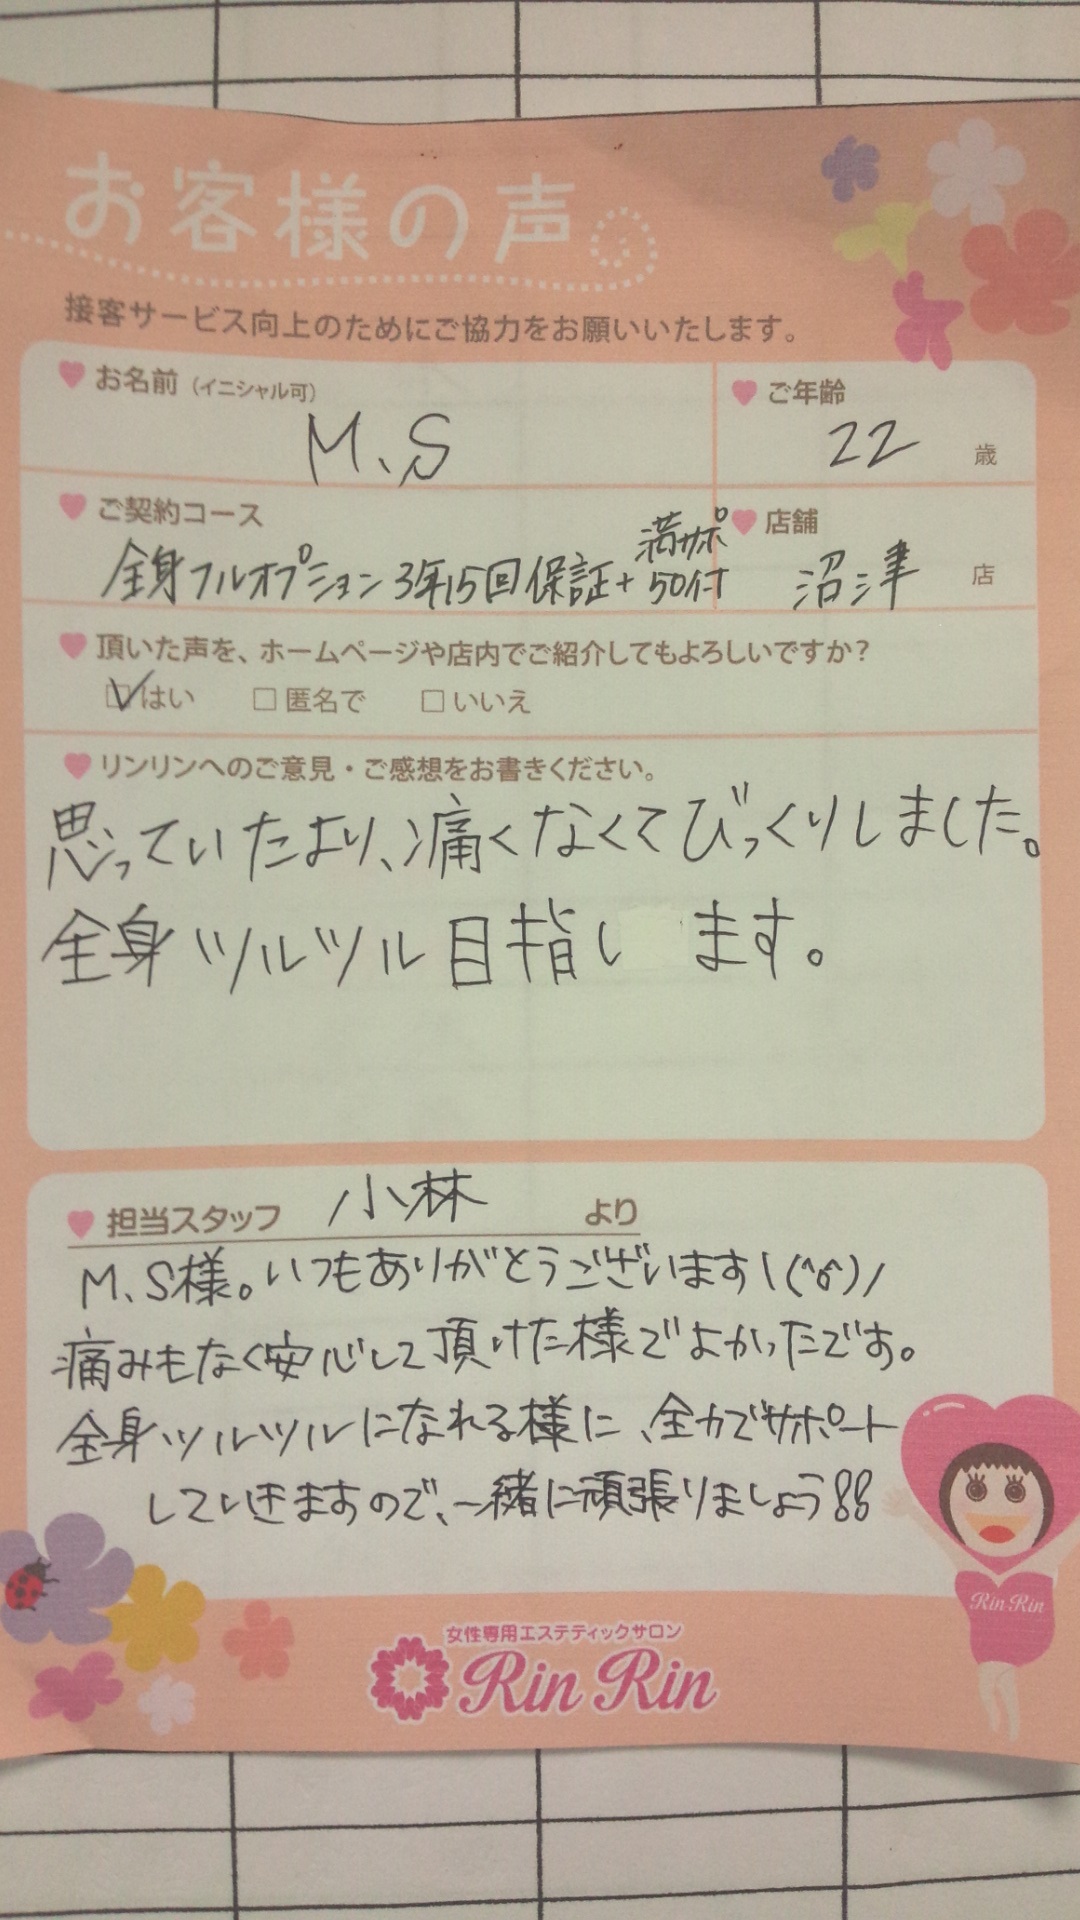 お客様の声
接客サービス向上のためにご協力をお願いいたします。
お名前(イニシャル可)
M.S
ご年齢
22 歳
ご契約コース
全身フルオプション3年15回保証+満サポ50付
店舗
沼津 店
頂いた声を、ホームページや店内でご紹介してもよろしいですか?
☑はい □匿名で □いいえ
リンリンへのご意見・ご感想をお書きください。
思っていたより、痛くなくてびっくりしました。
全身ツルツル目指します。
担当スタッフ 小林 より
M.S様。いつもありがとうございます\(^o^)/
痛みもなく安心して頂けた様でよかったです。
全身ツルツルになれる様に、全力でサポート
していきますので、一緒に頑張りましょう!!
Rin Rin
女性専用エステティックサロン
Rin Rin